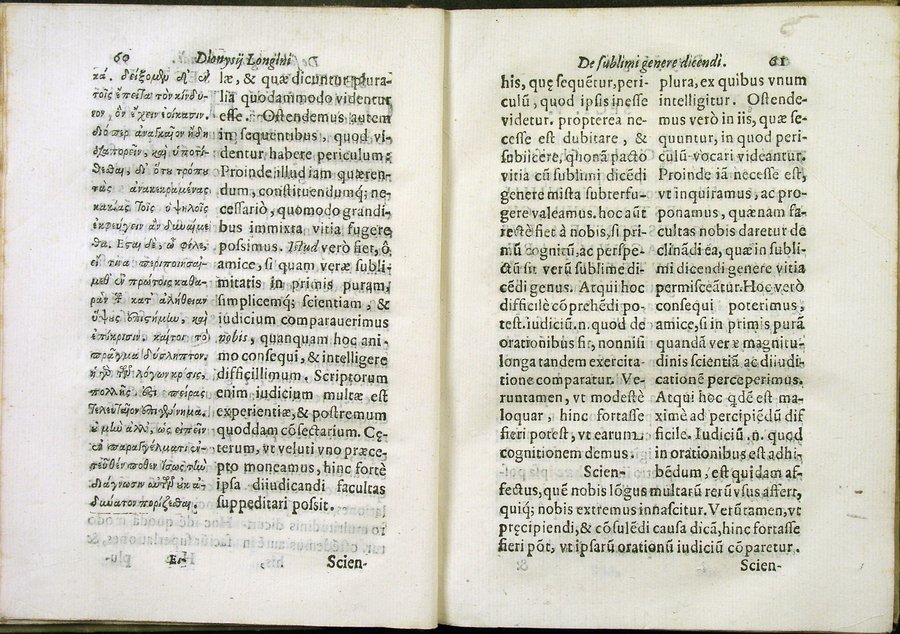 60 Dionysij Longini
κά. δείξομεν δὲ ἐν
τοῖς ἔπειτα τὸν κίνδυ-
νον, ὃν ἔχειν ἔοικασιν.
διόπερ ἀναγκαῖον ἤδη
διαπορεῖν, καὶ ὑποτί-
θεσθαι, δι' ὅτου τρόπου
τὰς ἀνακεκραμένας
κακίας τοῖς ὑψηλοῖς
ἐκφεύγειν δυνάμε
θα. ἔσται δὲ, ὦ φίλε,
εἴ τινα περιποιησαί-
μεθ' ἐν πρώτοις καθα-
ρὰν τοῦ κατ' ἀλήθειαν
ὕψους ἐπιστήμην, καὶ
ἐπίκρισιν. καίτοι τὸ
πρᾶγμα δύσληπτον.
ἡ γὰρ τῶν λόγων κρίσις,
πολλῆς ἐστι πείρας
τελευταῖον ἐπιγέννημα.
οὐ μὴν ἀλλ', ὡς εἰπεῖν
ἐν παραγγέλματι, ἐν-
τεῦθέν ποθεν ἴσως τὴν
διάγνωσιν αὐτῶν οὐκ ἀ-
δύνατον πορίζεσθαι.
læ, & quæ dicuntur plura-
lia quodammodo videntur
esse. Ostendemus autem
in sequentibus, quod vi-
dentur habere periculum:
Proinde illud iam quæren-
dum, constituendumq; ne-
cessariò, quomodo grandi-
bus immixta vitia fugere
possimus. Istud verò fiet, ô
amice, si quam veræ subli-
mitatis in primis puram,
simplicemq; scientiam, &
iudicium comparauerimus
nobis, quanquam hoc ani-
mo consequi, & intelligere
difficillimum. Scriptorum
enim iudicium multæ est
experientiæ, & postremum
quoddam cõsectarium. Cę-
terum, vt veluti vno præce-
pto moneamus, hinc fortè
ipsa diiudicandi facultas
suppeditari possit.
Scien-
De sublimi genere dicendi. 61
his, quę sequẽtur, peri-
culũ, quod ipsis inesse
videtur. propterea ne-
cesse est dubitare, &
subiicere, qhonã pacto
vitia cũ sublimi dicẽdi
genere mista subterfu-
gere valeamus. hoc aũt
rectè fiet à nobis, si pri-
mũ cognitũ, ac perspe-
ctũ sit verũ sublime di-
cẽdi genus. Atqui hoc
difficilè cõprehẽdi po-
test. iudiciũ .n. quod de
orationibus fit, nonnisi
longa tandem exercita-
tione comparatur. Ve-
runtamen, vt modestè
loquar, hinc fortasse
fieri potest, vt earum
cognitionem demus.
Scien-
plura, ex quibus vnum
intelligitur. Ostende-
mus verò in iis, quæ se-
quuntur, in quod peri-
culũ vocari videantur.
Proinde iã necesse est,
vt inquiramus, ac pro-
ponamus, quænam fa-
cultas nobis daretur de
clinãdi ea, quæ in subli-
mi dicendi genere vitia
permisceãtur. Hoc verò
consequi poterimus,
amice, si in primis purã
quandã veræ magnitu-
dinis scientiã ac diiudi-
cationẽ perceperimus.
Atqui hoc qdẽ est ma-
ximè ad percipiẽdũ dif
ficile. Iudiciũ .n. quod
in orationibus est adhi-
bẽdum, est quidam af-
fectus, quẽ nobis lõgus multarũ rerũ vsus affert,
quiq; nobis extremus innascitur. Verũtamen, vt
pręcipiendi, & cõsulẽdi causa dicã, hinc fortasse
fieri põt, vt ipsarũ orationũ iudiciũ cõparetur.
Scien-